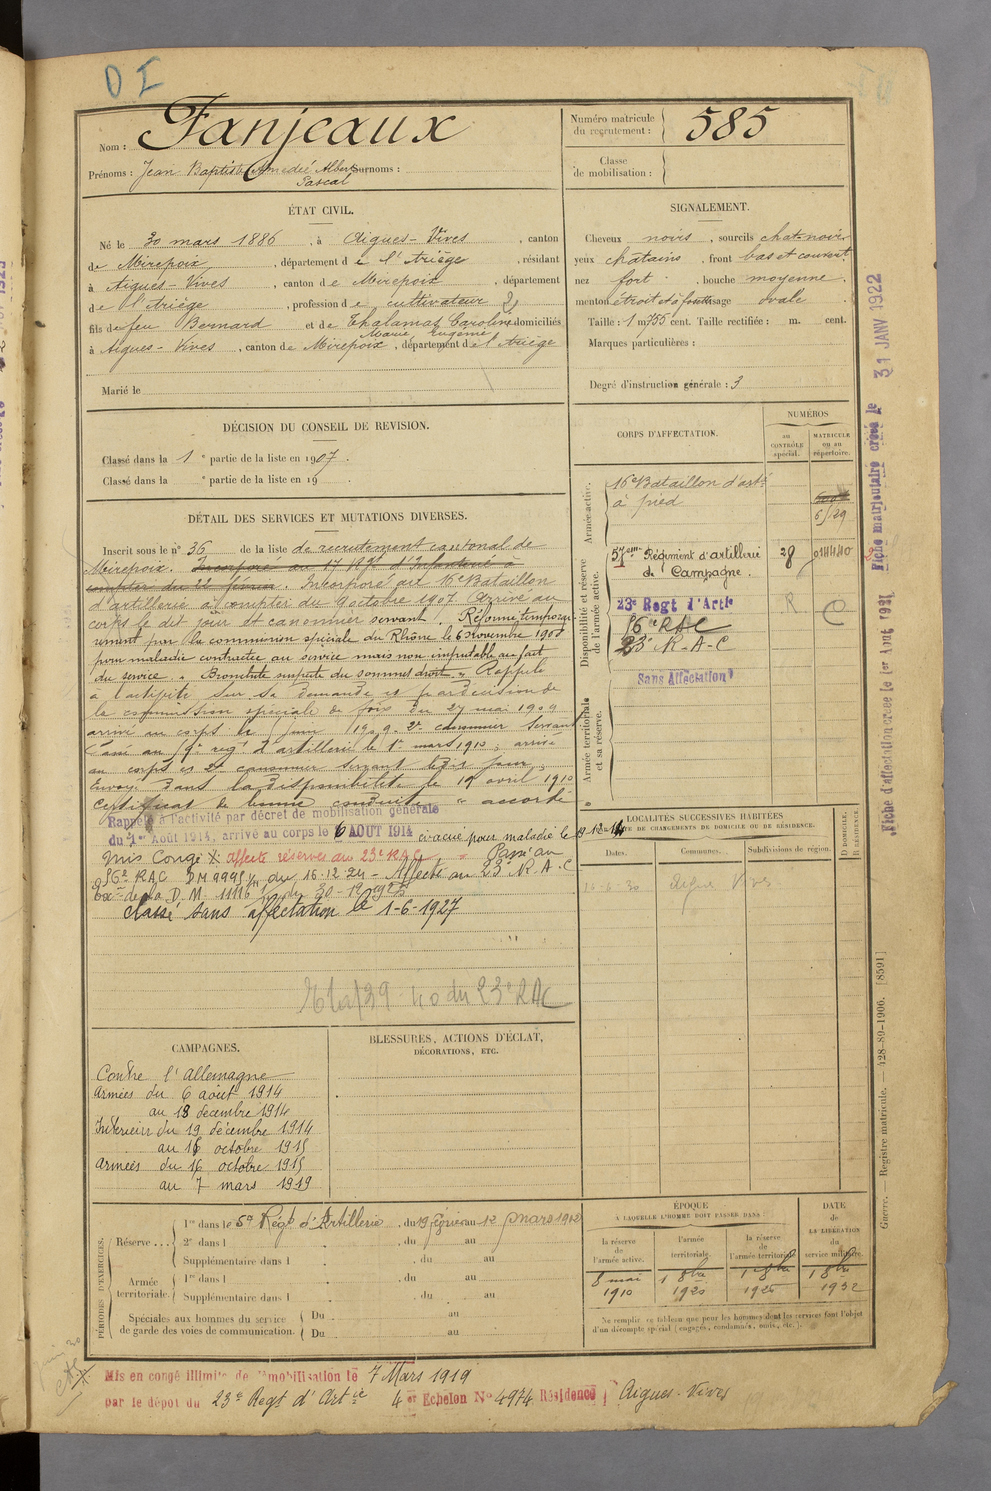 D I
Nom : Fanjeaux
Prénoms : Jean Baptiste Amedée Albert Surnoms :
Pascal
Numéro matricule
du recrutement : 585
Classe
de mobilisation :
ÉTAT CIVIL.
Né le 30 mars 1886 , à Aigues-Vives , canton
de Mirepoix , département de l'Ariège , résidant
à Aigues-Vives , canton de Mirepoix , département
de l'Ariège , profession de cultivateur
fils de feu Bernard et de Thalamas Caroline domiciliés
Marie Eugénie
à Aigues-Vives , canton de Mirepoix , département de l'Ariège
Marié le
SIGNALEMENT.
Cheveux noirs , sourcils chat-noirs
yeux chatains , front bas et couvert
nez fort , bouche moyenne ,
menton étroit et à fossette visage ovale
Taille : 1 m 755 cent. Taille rectifiée : m. cent.
Marques particulières :
Degré d'instruction générale : 3
DÉCISION DU CONSEIL DE REVISION.
Classé dans la 1 e partie de la liste en 1907 .
Classé dans la e partie de la liste en 19 .
DÉTAIL DES SERVICES ET MUTATIONS DIVERSES.
Inscrit sous le n° 36 de la liste de recrutement cantonal de
Mirepoix. Incorporé au d'Infanterie à
compter du . Incorporé au 16e Bataillon
d'artillerie à compter du 9 octobre 1907 Arrivé au
corps le dit jour et canonnier servant . Réformé temporai-
rement par la commission spéciale du Rhône le 6 novembre 1908
pour maladie contractée au service mais non imputable au fait
du service. « Bronchite suspecte du sommet droit » Rappelé
à l'activité sur sa demande et par décision de
la commission spéciale de foix du 27 mai 1909
arrivé au corps le juin 1909. 2e canonnier servant
Passé au 9e reg.t d'artillerie le 1er mars 1910, arrivé
au corps et 2e canonnier servant le dit jour,
Envoyé dans la disponibilité le 19 avril 1910
Certificat de bonne conduite " accordé
Rappelé à l'activité par décret de mobilisation générale
du 1er Août 1914, arrivé au corps le 6 AOUT 1914 évacué pour maladie le 19-12-14
mis Congé X. affecté réserves au 23e RAC. Passé au
56e RAC DM 9995 du 16-12-24 - Affecté au 23e R.A.C
Exon de la D.M. 11116 du 30-12-1925
classé sans affectation le 1-6-1927
39-40 du 23e RAC
CORPS D'AFFECTATION.
NUMÉROS
au
CONTRÔLE
spécial.
MATRICULE
ou au
répertoire.
Armée active.
16e Bataillon d'arte
à pied
6529
Disponibilité et réserve
de l'armée active.
57eme Régiment d'artillerie
de Campagne. 28
23e Regt d'Artie R
56e RAC
23e R-A-C
Sans Affectation
Armée territoriale
et sa réserve.
LOCALITÉS SUCCESSIVES HABITÉES
PAR SUITE DE CHANGEMENTS DE DOMICILE OU DE RÉSIDENCE.
D DOMICILE,
R RÉSIDENCE
Dates. Communes. Subdivisions de région.
Aigues Vives
CAMPAGNES.
Contre l'Allemagne
Armées du 6 août 1914
au 18 décembre 1914
Intérieur du 19 décembre 1914
au 15 octobre 1915
Armées du 16 octobre 1915
au 7 mars 1919
BLESSURES, ACTIONS D'ÉCLAT,
DÉCORATIONS, ETC.
PÉRIODES D'EXERCICES.
Réserve ....
1re dans le 59 Régt d'Artillerie , du 19 février au 12 mars 1912
2e dans l , du au
Supplémentaire dans l , du au
Armée
territoriale.
1re dans l , du au
Supplémentaire dans l , du au
Spéciales aux hommes du service
de garde des voies de communication.
Du au
Du au
ÉPOQUE
À LAQUELLE L'HOMME DOIT PASSER DANS :
la réserve
de
l'armée active.
l'armée
territoriale.
la réserve
de
l'armée territoriale.
DATE
de
LA LIBÉRATION
du
service militaire.
8 mai
1910
1 8bre
1920
1 8bre
1926
1 8bre
1932
Ne remplir ce tableau que pour les hommes dont les services font l'objet
d'un décompte spécial (engagés, condamnés, omis, etc.).
Mis en congé illimité de démobilisation le 7 Mars 1919
par le dépôt du 23e Regt d'Artie 4er Echelon No 4974 Résidence Aigues-Vives
Fiche matriculaire créée le 31 JANV 1922
Fiche d'affectation créée le 1er Août 1921
Guerre. — Registre matricule. — 428-89-1906. [8591]